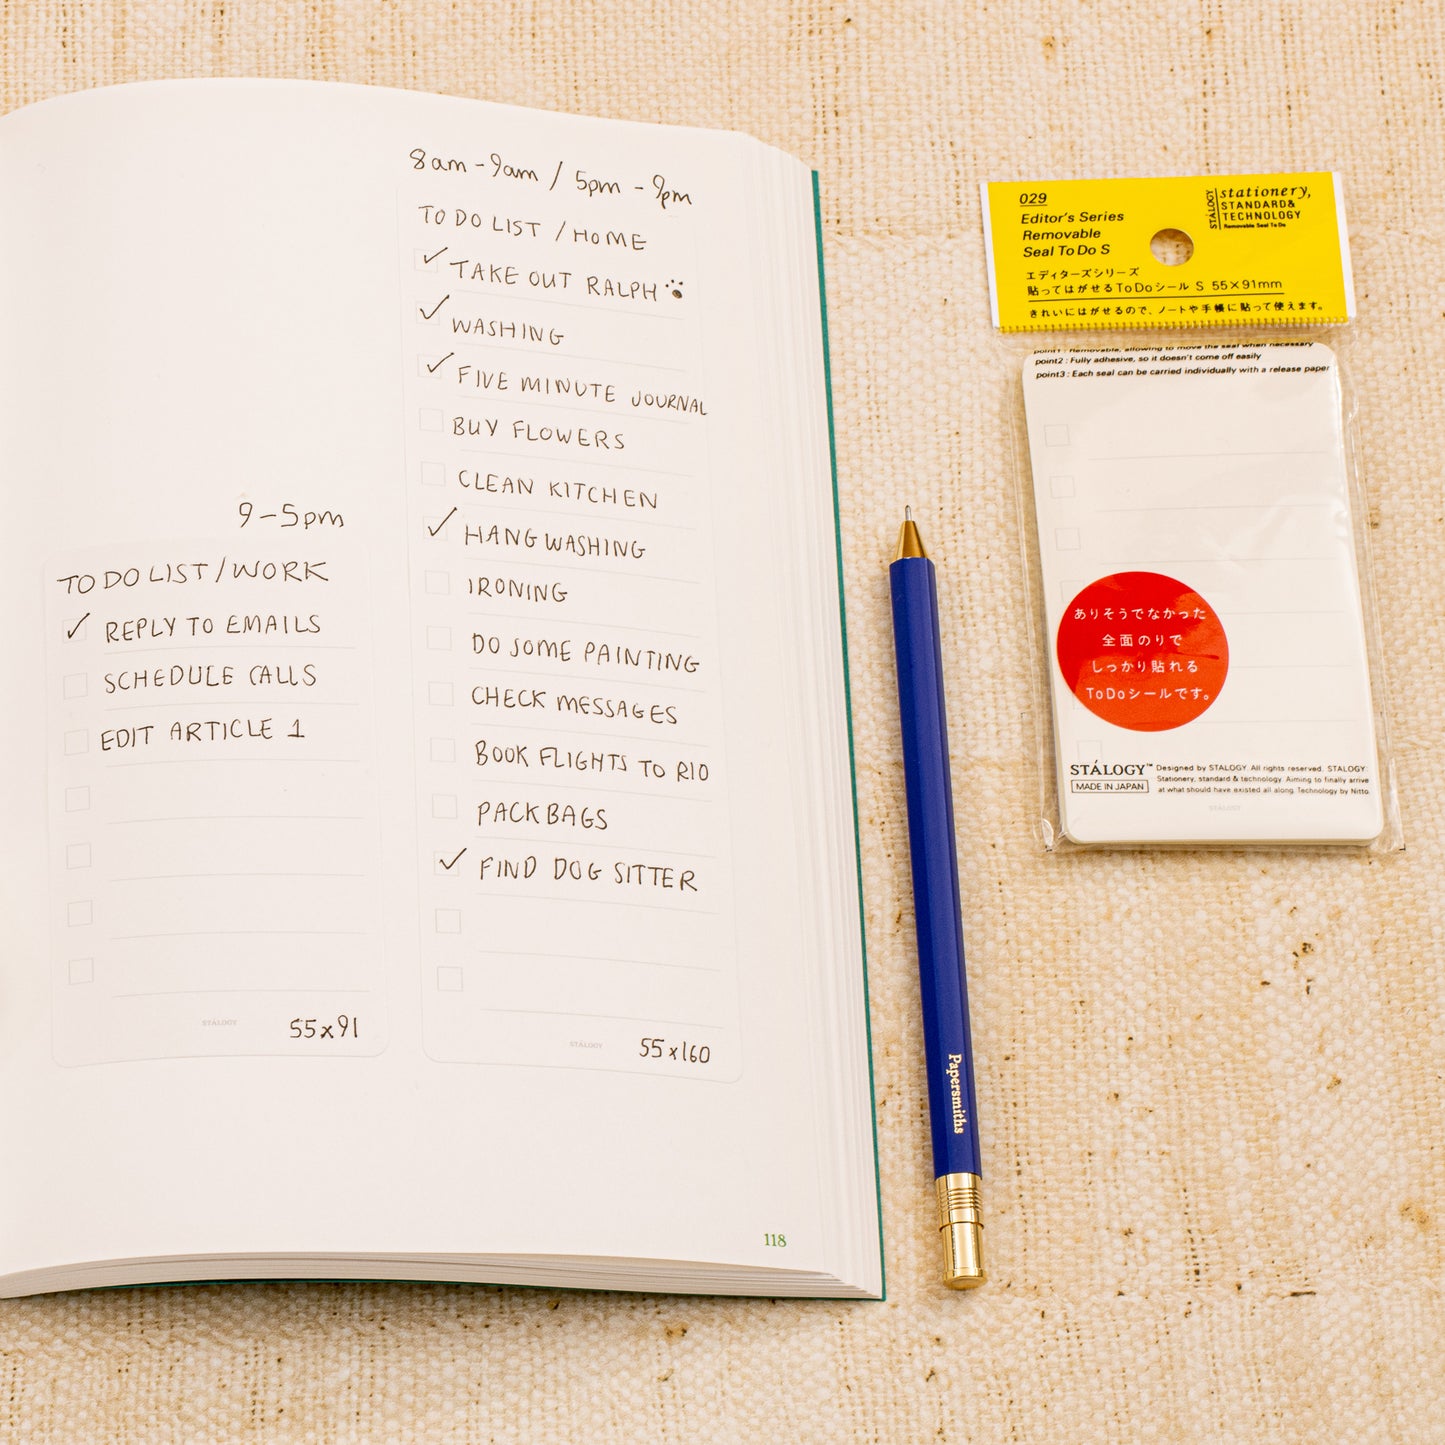 8am - 9am / 5pm - 9pm
TO DO LIST / HOME
TAKE OUT RALPH
WASHING
FIVE MINUTE JOURNAL
BUY FLOWERS
CLEAN KITCHEN
HANG WASHING
IRONING
DO SOME PAINTING
CHECK MESSAGES
BOOK FLIGHTS TO RIO
PACK BAGS
FIND DOG SITTER
STÁLOGY
55x160
9-5pm
TO DO LIST / WORK
REPLY TO EMAILS
SCHEDULE CALLS
EDIT ARTICLE 1
STÁLOGY
55x91
118
Papersmiths
029
Editor's Series
Removable
Seal To Do S
エディターズシリーズ
貼ってはがせるToDoシール S 55×91mm
きれいにはがせるので、ノートや手帳に貼って使えます。
STÁLOGY
stationery,
STANDARD&
TECHNOLOGY
Removable Seal To Do
point1 : Removable, allowing to move the seal when necessary
point2 : Fully adhesive, so it doesn't come off easily
point3 : Each seal can be carried individually with a release paper
ありそうでなかった
全面のりで
しっかり貼れる
ToDoシールです。
STÁLOGY™
MADE IN JAPAN
Designed by STALOGY. All rights reserved. STALOGY:
Stationery, standard & technology. Aiming to finally arrive
at what should have existed all along. Technology by Nitto
STÁLOGY